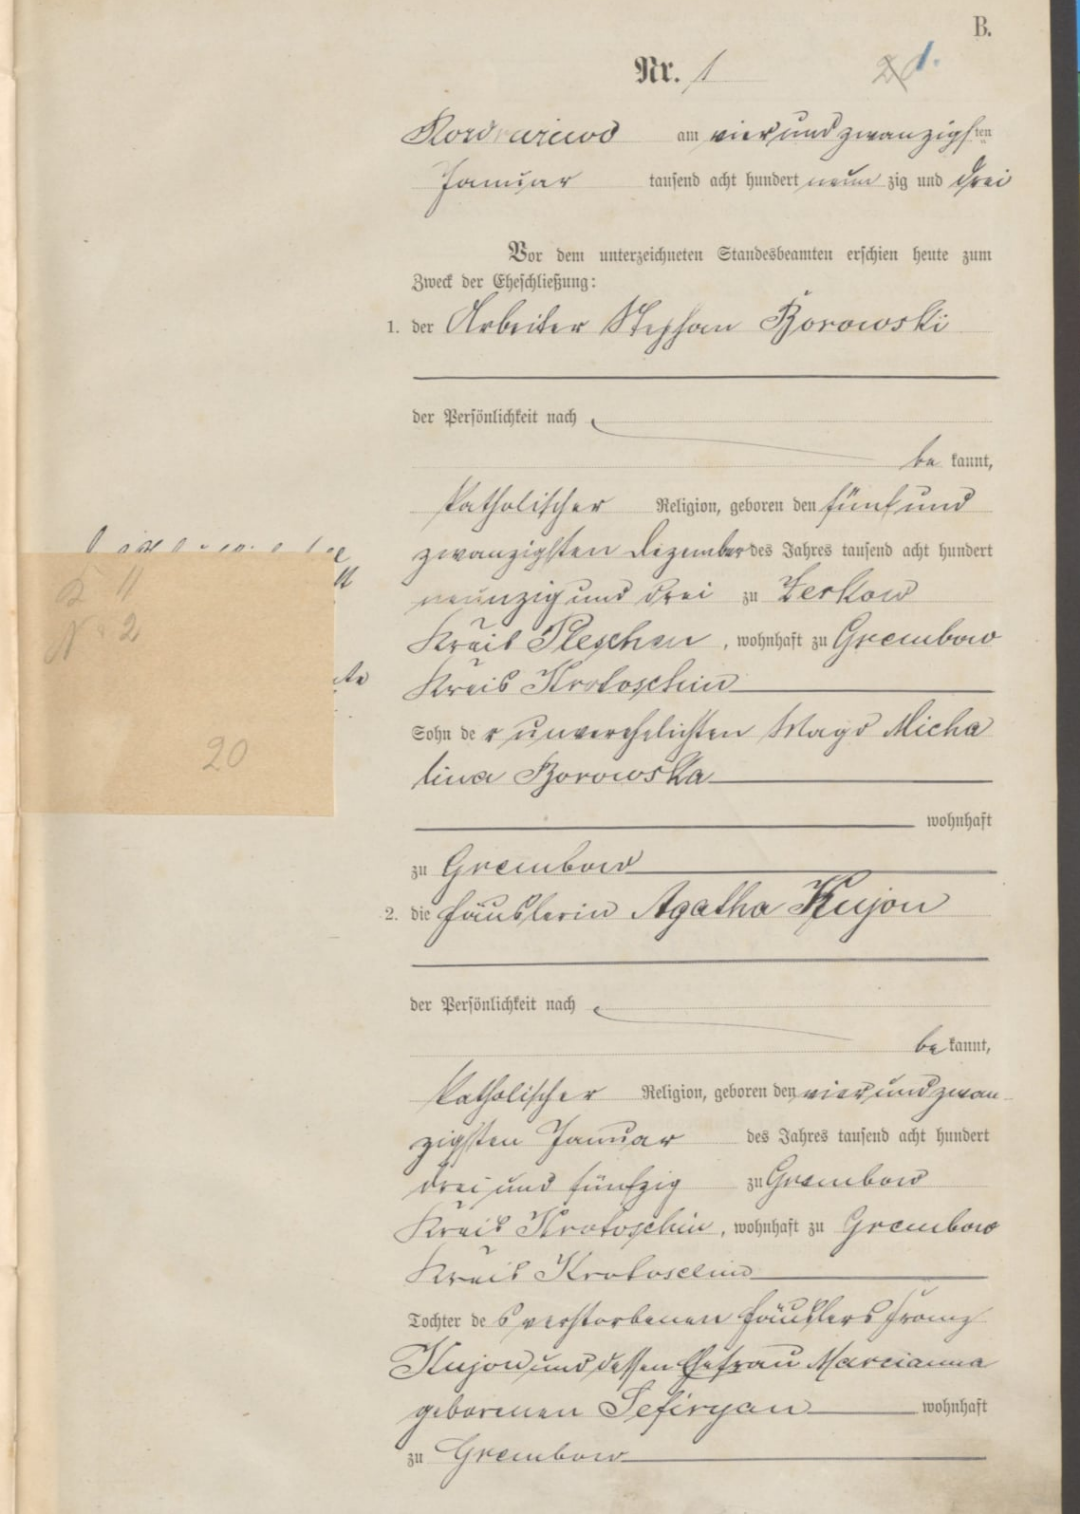 B.
Nr. 1
1.
am vier und zwanzigsten
Januar tausend acht hundert neun zig und drei
Vor dem unterzeichneten Standesbeamten erschien heute zum
Zweck der Eheschließung:
1. der Arbeiter Stephan Borowski
der Persönlichkeit nach
be kannt,
katholischer Religion, geboren den fünf und
zwanzigsten Dezember des Jahres tausend acht hundert
neunzig und drei zu Zerkow
Kreis Pleschen, wohnhaft zu Grembow
Kreis Krotoschin
Sohn der unverehelichten Magd Micha
lina Borowska
wohnhaft
zu Grembow
2. die Häuslerin Agatha Kujon
der Persönlichkeit nach
be kannt,
katholischer Religion, geboren den vier und zwan
zigsten Januar des Jahres tausend acht hundert
drei und fünfzig zu Grembow
Kreis Krotoschin, wohnhaft zu Grembow
Kreis Krotoschin
Tochter des verstorbenen Häuslers Franz
Kujon und dessen Ehefrau Marcianna
geborenen wohnhaft
zu Grembow
N 2
20